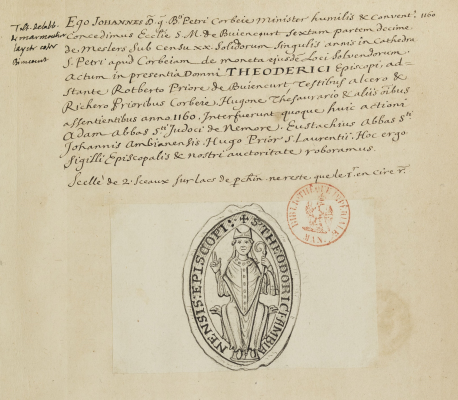 Ego JOHANNES D. g. Bti Petri Corbeie Minister humilis & Convent. 1160
Concedimus Ecclie S. M. de Buiencurt Sextam partem decime
de Meslers Sub Censu xx. Solidorum Singulis annis in Cathedra
S. Petri apud Corbeiam de moneta ejusdē Loci Solvendorum
Actum in presentia Domni THEODERICI Episcopi, ad-
stante Rotberto Priore de Buiencurt Testibus alvero &
Richero Prioribus Corbeie, Hugone Thesaurario & aliis oībus
assentientibus anno 1160. Interfuerunt quoque huic actioni
Adam Abbas Sti Judoci de Nemore. Eustachius Abbas Sti
Johannis Ambianensis. Hugo Prior S. Laurentii. Hoc ergo
Sigilli Episcopalis & nostri auctoritate roboramus.
Scellé de 2. Sceaux sur lacs de pchin. ne reste que le 1. en cire r.
BIBLIOTHÈQUE IMPÉRIALE
MAN.
S. THEODORICI AMBIA
NENSIS: EPISCOPI: